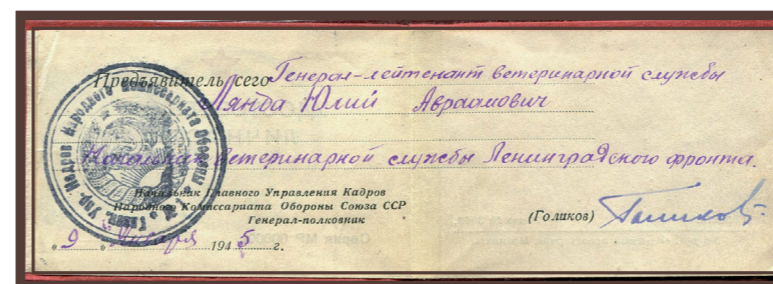 Предъявитель сего Генерал-лейтенант ветеринарной службы
Лянда Юлий Абрамович
Начальник ветеринарной службы Ленинградского фронта.
Начальник Главного Управления Кадров
Народного Комиссариата Обороны Союза ССР
Генерал-полковник
(Голиков) Голиков
"9" Января 1945 г.
Главн. Упр. Кадров Народного Комиссариата Обороны